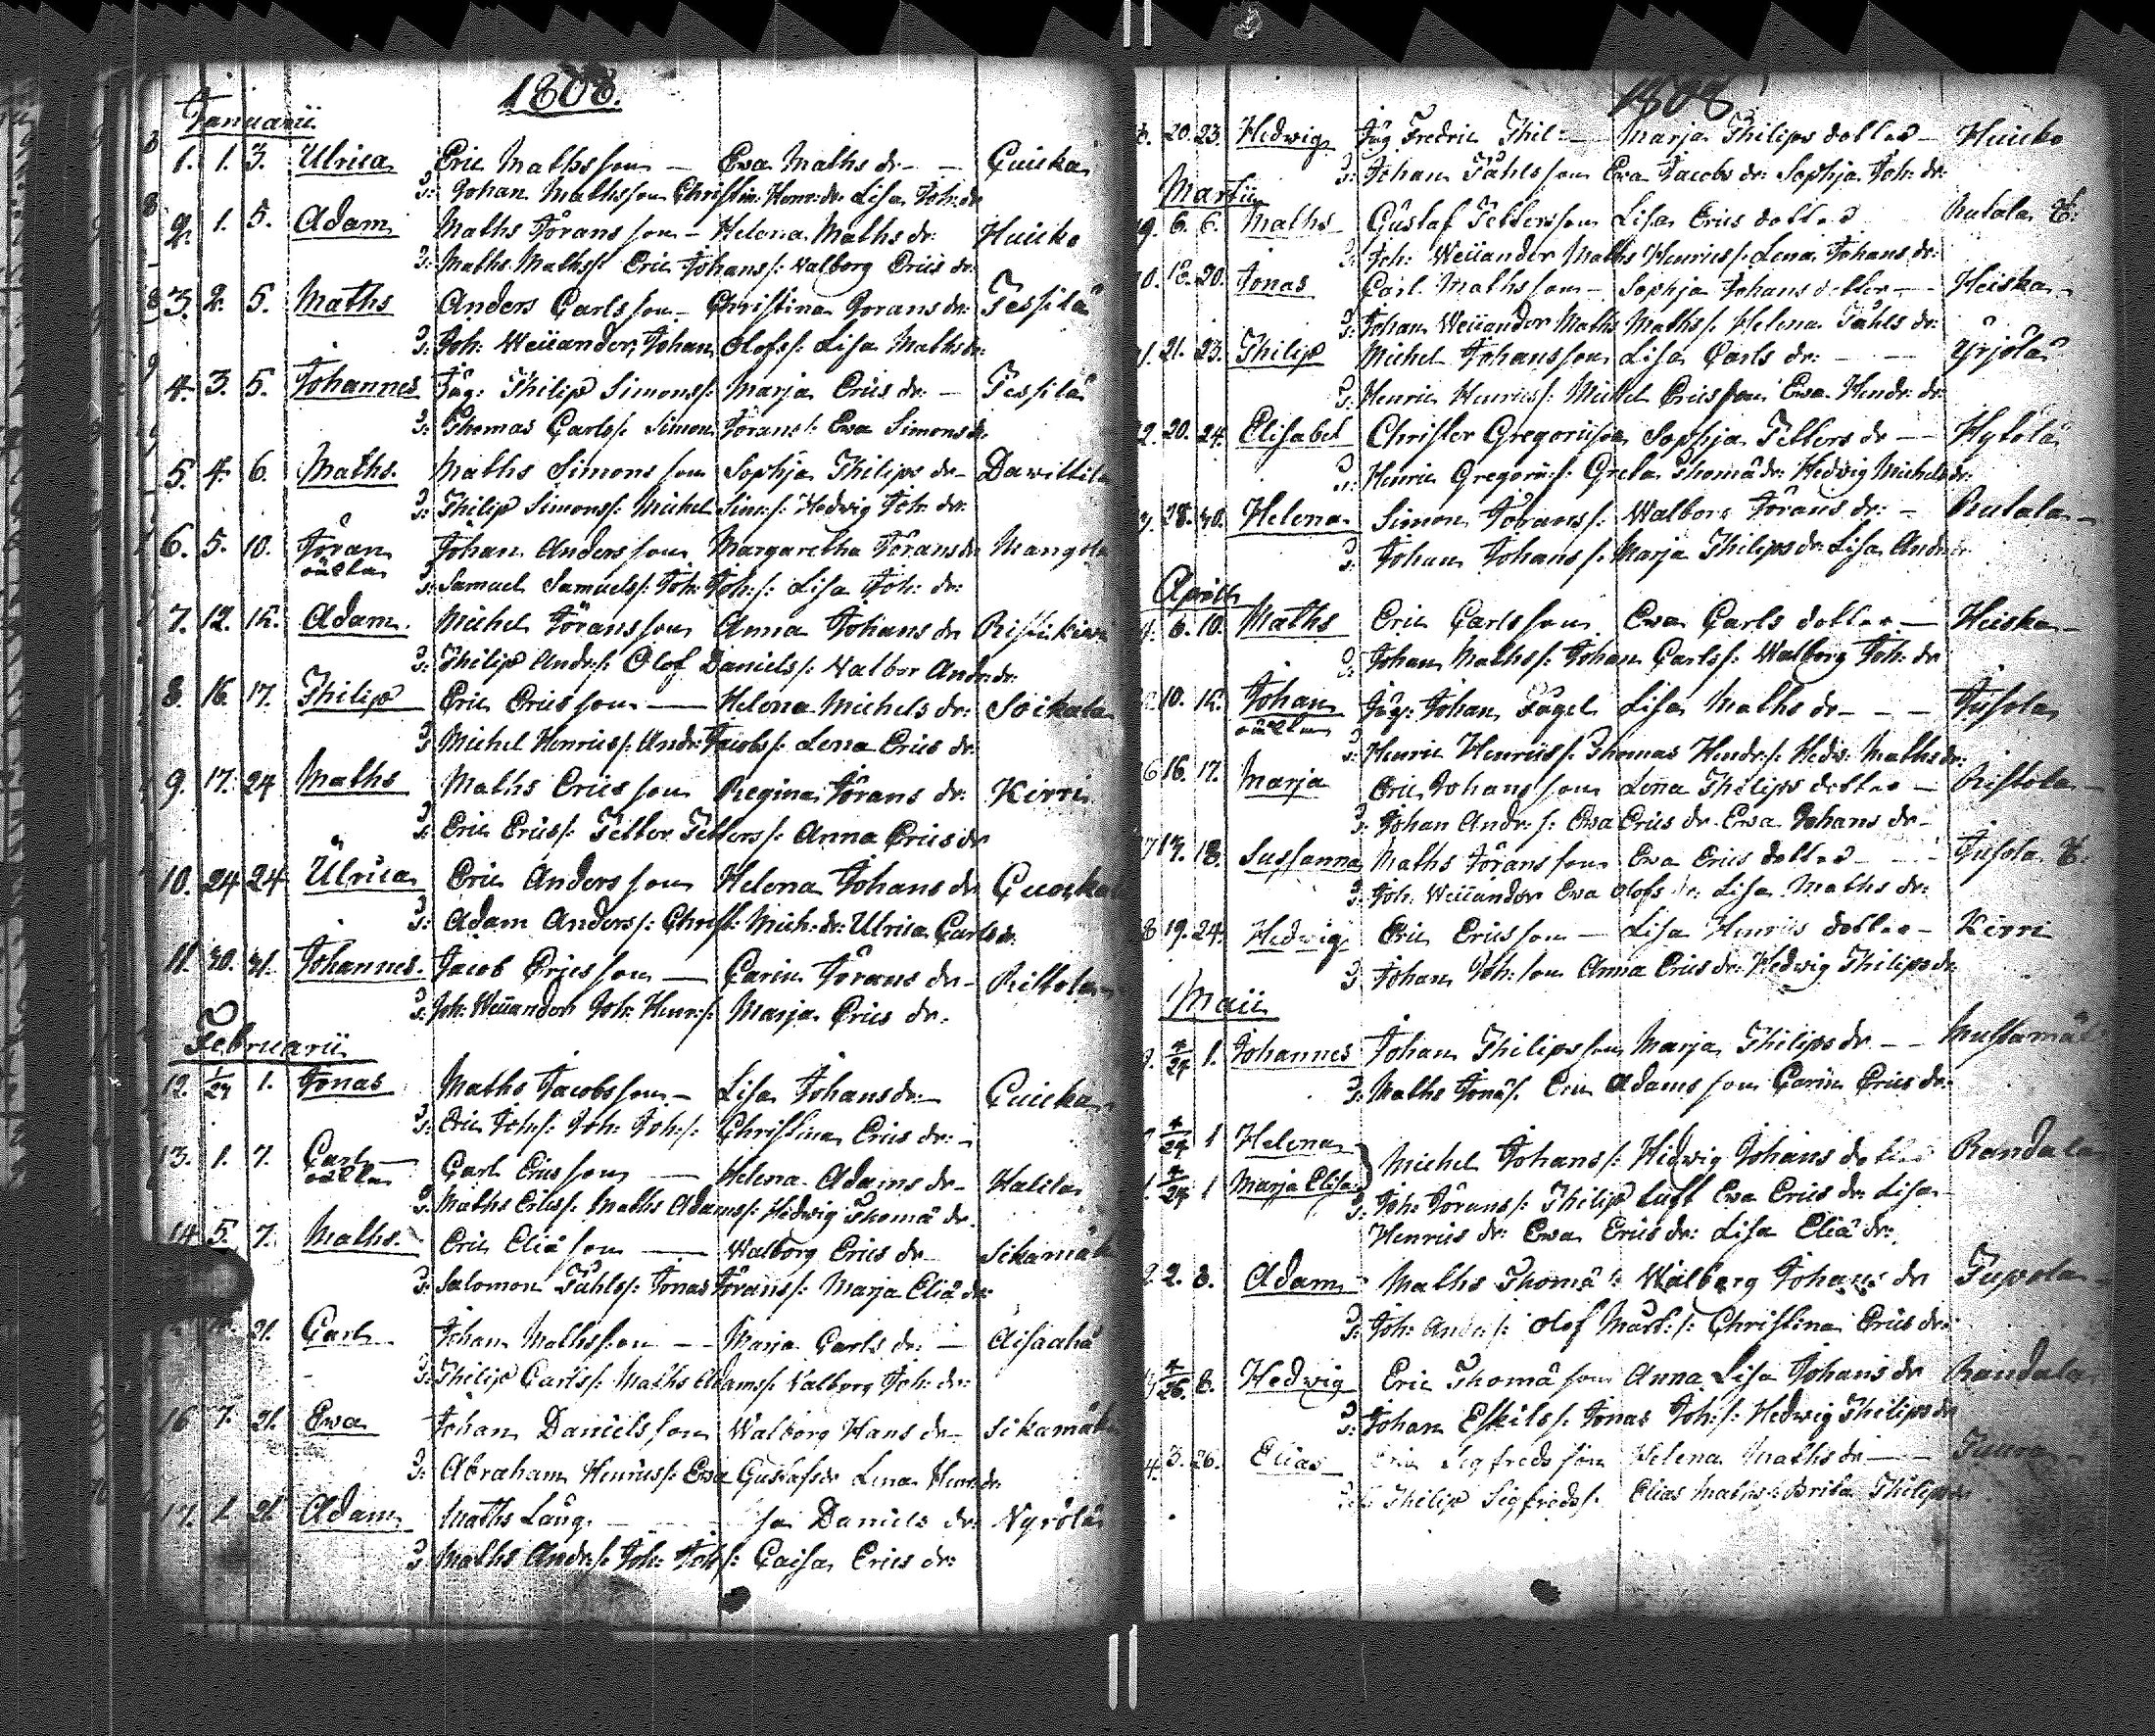 1808.
Januarii
1. 1. 3. Ulrica Eric Mathsson — Ewa Maths dr — Cuicka
Johan Mathsson Christin: Henr: dr Lisa Joh: dr
2. 1. 5. Adam Maths Jöransson — Helena Maths dr: Huicko
Maths Maths s: Eric Johans s: Walborg Erics dr:
3. 2. 5. Maths Anders Carlsson — Christina Görans dr: Pessilä
Joh: Weilander, Johan Olofs s: Lisa Maths dr:
4. 3. 5. Johannes Philip Simons s: Marja Erics dr: — Pessilä
Thomas Carls s: Simon Jörans s: Ewa Simons dr:
5. 4. 6. Maths. Maths Simons son Sophja Philips dr —
Philip Simons s: Michel Sim: s: Hedwig Joh: dr:
6. 5. 10. Jöran Johan Andersson Margaretha Jörans dr
oäkta Samuel Samuels s: Joh: Joh: s: Lisa Joh: dr:
7. 12. Adam. Michel Jöransson Anna Johans dr
Philip Andr: s: Olof Daniels s: Walbor Andr: dr:
8. 16. 17. Philip Eric Ericsson — Helena Michels dr: Soikala
Michel Henrics s: Andr: Jacobs s: Lena Erics dr:
9. 17. 24 Maths Maths Ericsson Regina Jörans dr: Kirri
Eric Erics s: Petter Petters s: Anna Erics dr
10. 24 24 Ulrica Eric Andersson Helena Johans dr
Adam Anders s: Christ: Mich: dr: Ulrica Carls dr
11. 30. 31. Johannes. Jacob Ericsson — Carin Jörans dr — Ristola
Joh: Weilander Joh: Henr: s: Marja Erics dr.
Februarii
12. 1/29 1. Jonas Maths Jacobsson — Lisa Johans dr — Cuicka
Eric Joh: s: Joh: Joh: s: Christina Erics dr: —
13. 1. 7. Carl Carl Ericsson — Helena Adams dr — Halila
oäkta Maths Erics s: Maths Adams s: Hedwig Thomä dr.
14. 5. 7. Maths. Eric Eliä son — Walborg Erics dr
Salomon Påhls s: Jonas Jörans s: Marja Eliä dr:
21. Carl Johan Mathsson — Marja Carls dr: —
Philip Carls s: Maths Adams s: Walborg Joh: dr:
16 7. 21. Ewa Johan Daniels son Walborg Hans dr —
Abraham Henrics s: Ewa Gustafs dr Lena Henr: dr
17. 1. 21 Adam Maths Lång Daniels dr: Nyrölä
Maths Andr: s: Joh: Joh: s: Caisa Erics dr:
1808
20. 23. Hedwig Fredric Phil: — Marja Philips dotter — Huicko
Johan Påhlsson Ewa Jacobs dr: Sophja Joh: dr:
Martii
6. 6. Maths Gustaf Pettersson Lisa Erics dotter
Joh: Weilander Maths Henrics s: Lena Johans dr:
18. 20. Jonas Carl Mathsson — Sophja Johans dotter — Heiska
Johan Weilander Maths Maths s: Helena Påhls dr:
21. 23. Philip Michel Johansson Lisa Carls dr: — Yrjölä
Henric Henrics s: Michel Ericsson Ewa Hendr: dr:
20. 24. Elisabet Christer Gregorii son Sophja Petters dr — Hytölä
Henric Gregorii s: Greta Thomä dr: Hedwig Michels dr:
28. 30. Helena Simon Jörans s: Walborg Jörans dr: — Rutala
Johan Johans s: Marja Philips dr: Lisa Andr: dr:
Aprilis
6. 10. Maths Eric Carlsson Ewa Carls dotter — Heiska
Johan Maths s: Johan Carls s: Walborg Joh: dr
10. Johan Johan Fagel Lisa Maths dr —
oäkta Henric Henrics s: Thomas Hendr: s: Hedw: Maths dr:
16. 17. Marja Eric Johansson Lena Philips dotter — Ristola
Johan Andr: s: Ewa Erics dr Ewa Johans dr —
18. Sussanna Maths Jöransson Ewa Erics dotter
Joh: Weilander Ewa Olofs dr: Lisa Maths dr:
19. 24. Hedwig Eric Ericsson — Lisa Henrics dotter — Kirri
Johan Joh: son Anna Erics dr: Hedwig Philips dr:
Maii
4/24 1. Johannes Johan Philipsson Marja Philips dr —
Maths Jonä s: Eric Adams son Carin Erics dr:
4/24 1 Helena Michel Johans s: Hedwig Johans dotter Randala
4/24 1 Marja Elisa: Joh: Jörans s: Philip Luft Ewa Erics dr: Lisa
Henrics dr: Ewa Erics dr: Lisa Eliä dr:
2. 8. Adam Maths Thomä s: Walborg Johans dr
Joh: Andr: s: Olof Mart: s: Christina Erics dr:
4/26 8. Hedwig Eric Thomä son Anna Lisa Johans dr Randala
Johan Eskils s: Jonas Joh: s: Hedwig Philips dr
3. 26. Elias Eric Sigfreds son Helena Maths dr —
Philip Sigfreds s: Elias Maths s: Brita Philips dr